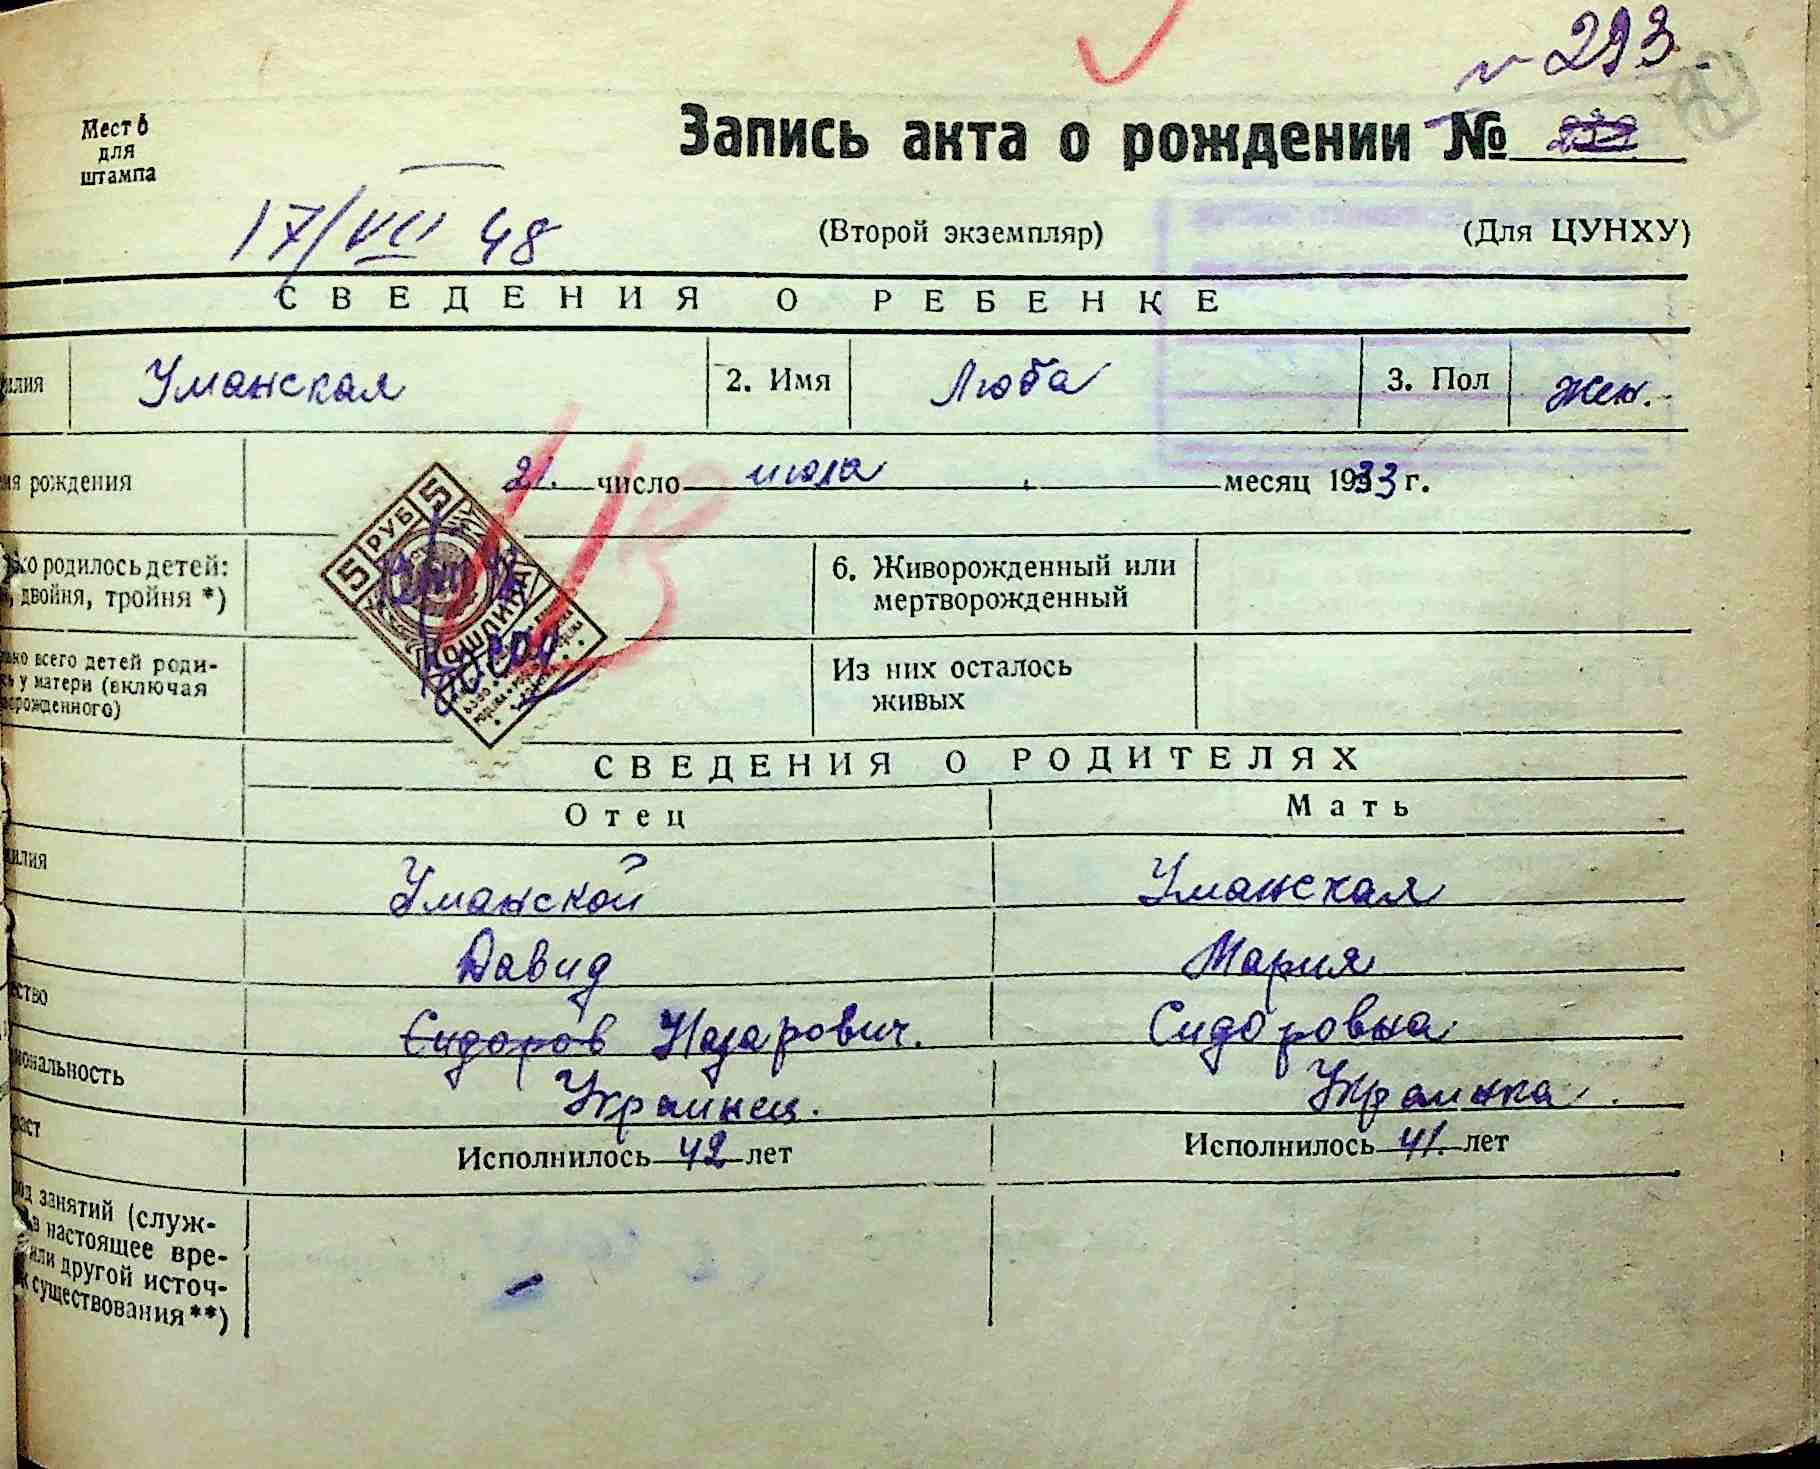 № 293
Место
для
штампа
Запись акта о рождении №
17/VII 48
(Второй экземпляр) (Для ЦУНХУ)
СВЕДЕНИЯ О РЕБЕНКЕ
илия Уманская 2. Имя Люба 3. Пол жен.
мя рождения 21. число июля месяц 1933 г.
ько родилось детей:
, двойня, тройня *)
6. Живорожденный или
мертворожденный
5 РУБ 5
ПОШЛИНА
лько всего детей роди-
сь у матери (включая
ворожденного)
Из них осталось
живых
СВЕДЕНИЯ О РОДИТЕЛЯХ
Отец Мать
милия Уманской Уманская
Давид Мария
ество Сидоров Назарович. Сидоровна
иональность Украинец. Украинка.
раст Исполнилось 42 лет Исполнилось 41. лет
род занятий (служ-
в настоящее вре-
или другой источ-
к существования **)